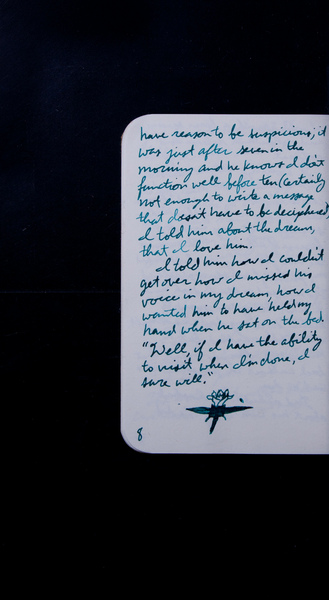 have reason to be suspicious; it
was just after seven in the
morning and he knows I don't
function well before ten (certainly
not enough to write a message
that doesn't have to be deciphered)
I told him about the dream,
that I love him.
I told him how I couldn't
get over how I missed his
voice in my dream, how I
wanted him to have held my
hand when he sat on the bed
"Well, if I have the ability
to visit when I'm done, I
sure will."
8